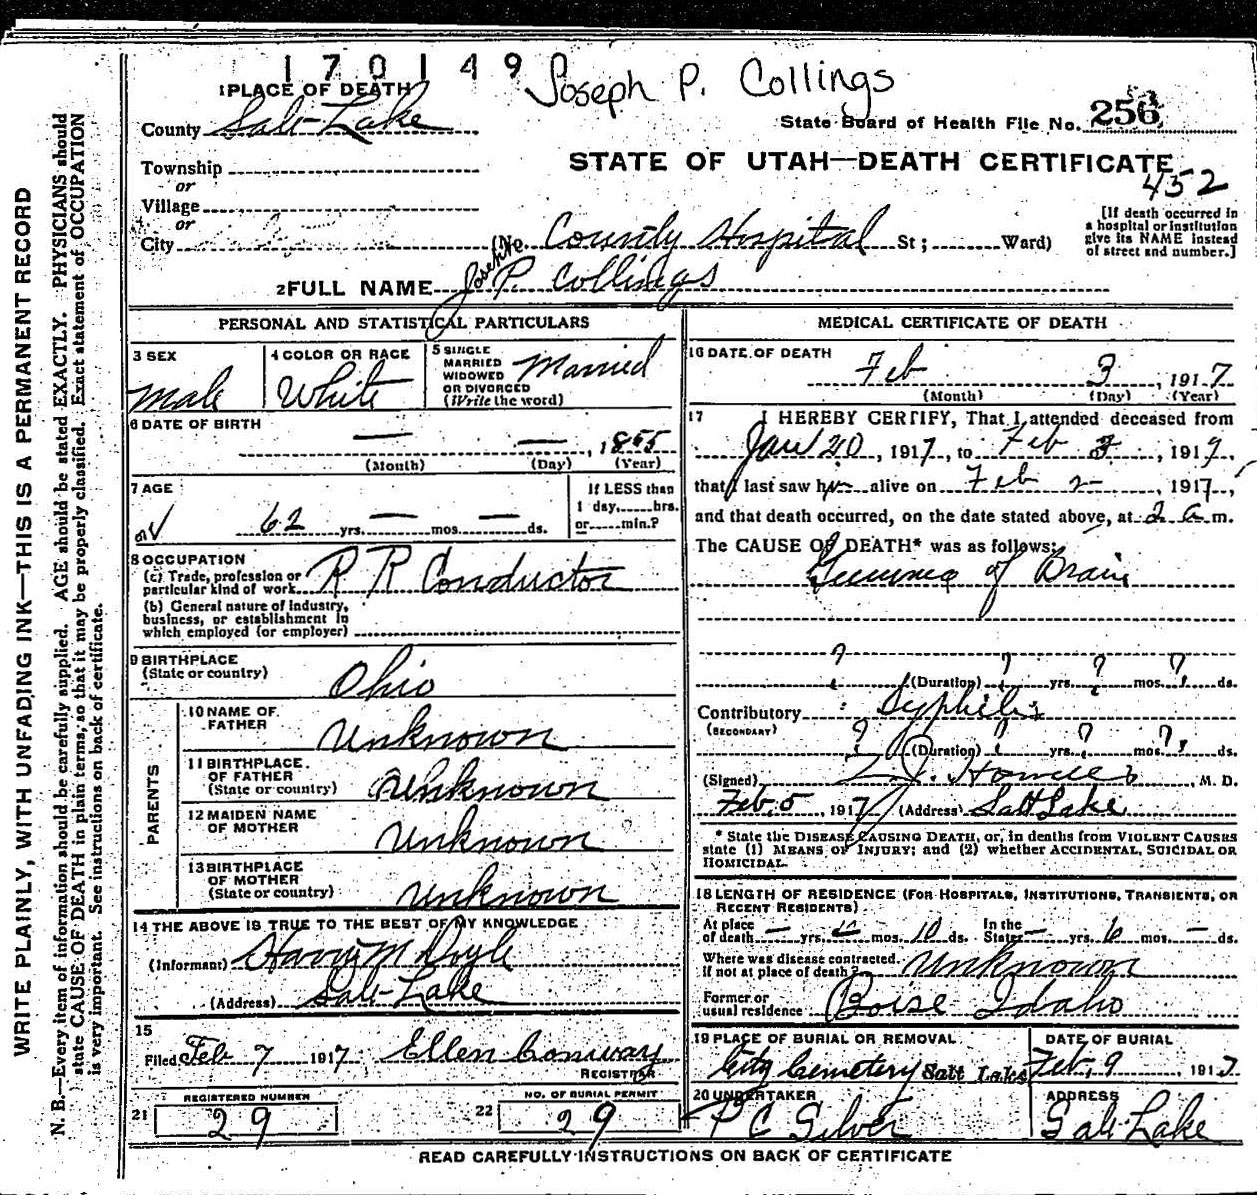 170149
Joseph P. Collings
1 PLACE OF DEATH
County Salt Lake
State Board of Health File No. 256
Township
or
STATE OF UTAH—DEATH CERTIFICATE
452
Village
or
City (No. County Hospital St; Ward)
[If death occurred in
a hospital or institution
give its NAME instead
of street and number.]
2 FULL NAME Joseph P. Collings
PERSONAL AND STATISTICAL PARTICULARS
3 SEX
Male
4 COLOR OR RACE
White
5 SINGLE
MARRIED
WIDOWED
OR DIVORCED
(Write the word)
Married
6 DATE OF BIRTH
— — , 1855
(Month) (Day) (Year)
7 AGE
62 yrs. — mos. — ds.
If LESS than
1 day, hrs.
or min.?
8 OCCUPATION
(c) Trade, profession or
particular kind of work R R Conductor
(b) General nature of industry,
business, or establishment in
which employed (or employer)
9 BIRTHPLACE
(State or country) Ohio
PARENTS
10 NAME OF
FATHER Unknown
11 BIRTHPLACE
OF FATHER
(State or country) Unknown
12 MAIDEN NAME
OF MOTHER Unknown
13 BIRTHPLACE
OF MOTHER
(State or country) Unknown
14 THE ABOVE IS TRUE TO THE BEST OF MY KNOWLEDGE
(Informant) Harry M Doyle
(Address) Salt Lake
15
Filed Feb 7 1917 Ellen Conway
REGISTRAR
21 REGISTERED NUMBER
29
22 NO. OF BURIAL PERMIT
29
MEDICAL CERTIFICATE OF DEATH
16 DATE OF DEATH
Feb 3, 1917
(Month) (Day) (Year)
17 I HEREBY CERTIFY, That I attended deceased from
Jan 20, 1917, to Feb 3, 1917,
that I last saw him alive on Feb 2, 1917,
and that death occurred, on the date stated above, at 2 a m.
The CAUSE OF DEATH* was as follows:
Gumma of Brain
? ? ? ?
(Duration) yrs. mos. ds.
Contributory Syphilis
(SECONDARY)
? ? ? ?
(Duration) yrs. mos. ds.
(Signed) M. D.
Feb. 5, 1917 (Address) Salt Lake
* State the DISEASE CAUSING DEATH, or, in deaths from VIOLENT CAUSES
state (1) MEANS OF INJURY; and (2) whether ACCIDENTAL, SUICIDAL OR
HOMICIDAL.
18 LENGTH OF RESIDENCE (FOR HOSPITALS, INSTITUTIONS, TRANSIENTS, OR
RECENT RESIDENTS)
At place
of death — yrs. — mos. 10 ds.
In the
State — yrs. 6 mos. — ds.
Where was disease contracted,
if not at place of death? Unknown
Former or
usual residence Boise Idaho
19 PLACE OF BURIAL OR REMOVAL
City Cemetery Salt Lake
DATE OF BURIAL
Feb. 9, 1917
20 UNDERTAKER
P C Silver
ADDRESS
Salt Lake
READ CAREFULLY INSTRUCTIONS ON BACK OF CERTIFICATE
WRITE PLAINLY, WITH UNFADING INK—THIS IS A PERMANENT RECORD
N. B.—Every item of information should be carefully supplied. AGE should be stated EXACTLY. PHYSICIANS should
state CAUSE OF DEATH in plain terms, so that it may be properly classified. Exact statement of OCCUPATION
is very important. See instructions on back of certificate.